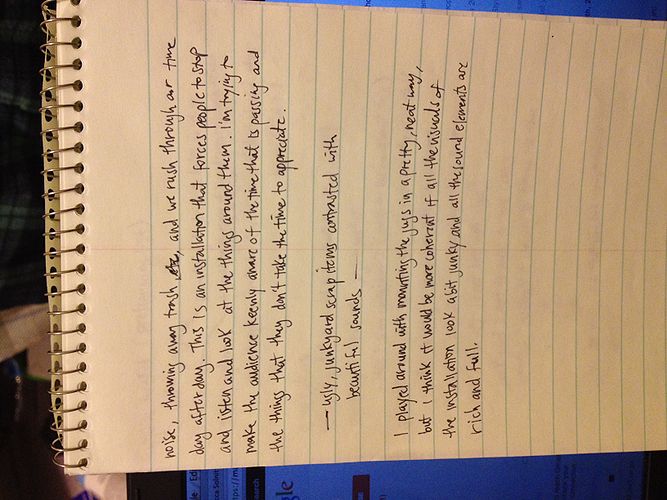 noise, throwing away trash, and we rush through our time
day after day. This is an installation that forces people to stop
and listen and look at the things around them. I'm trying to
make the audience keenly aware of the time that is passing and
the things that they don't take the time to appreciate.
— ugly, junkyard scrap items contrasted with
beautiful sounds —
I played around with mounting the jugs in a pretty, neat way,
but I think it would be more coherent if all the visuals of
the installation look a bit junky and all the sound elements are
rich and full.